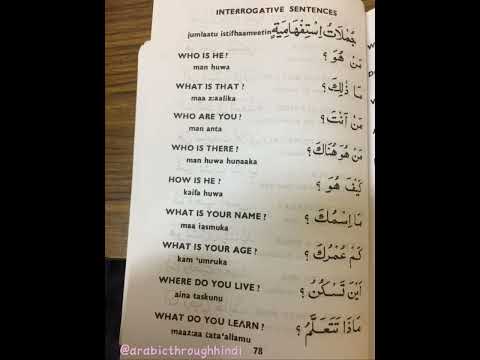 INTERROGATIVE SENTENCES
jumlaatu istifhaameetin جُمْلَاتُ اِسْتِفْهَامِيَةٍ
WHO IS HE? مَن هُوَ ؟
man huwa
WHAT IS THAT? مَا ذٰلِكَ ؟
maa z:aalika
WHO ARE YOU? مَنْ اَنْتَ ؟
man anta
WHO IS THERE? مَنْ هُوَ هُنَاكَ ؟
man huwa hunaaka
HOW IS HE? كَيْفَ هُوَ ؟
kaifa huwa
WHAT IS YOUR NAME? مَا اِسْمُكَ ؟
maa iasmuka
WHAT IS YOUR AGE? كَمْ عُمْرُكَ ؟
kam 'umruka
WHERE DO YOU LIVE? اَيْنَ تَسْكُنُ ؟
aina taskunu
WHAT DO YOU LEARN? مَاذَا تَتَعَلَّمُ ؟
maaz:aa tata'allamu
78
@arabicthroughhindi